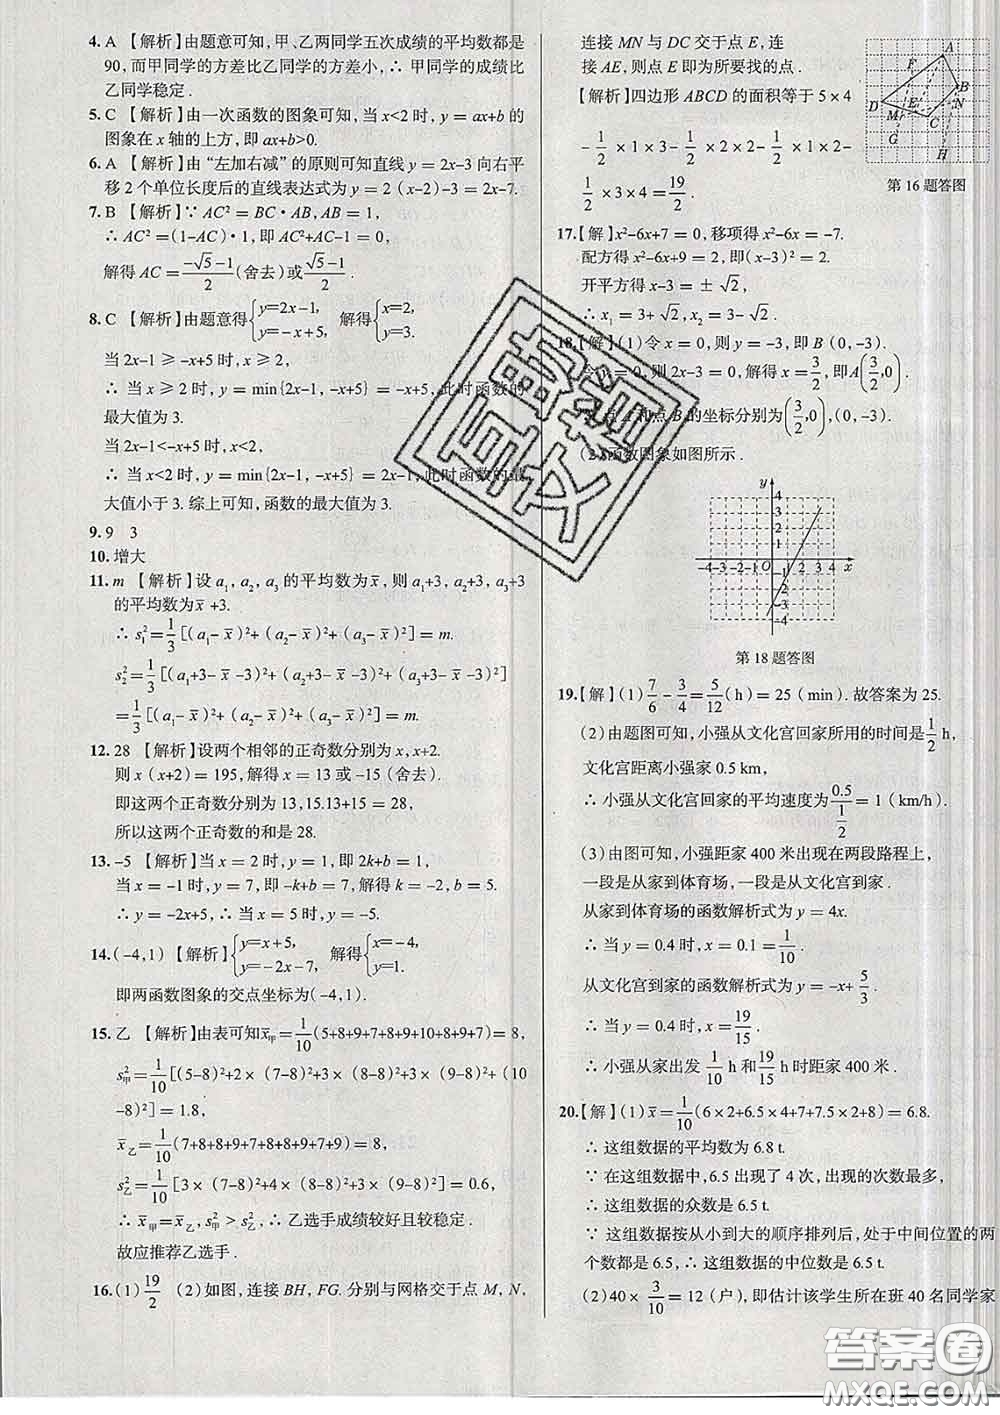 4. A 【解析】由题意可知,甲、乙两同学五次成绩的平均数都是
90,而甲同学的方差比乙同学的方差小,∴ 甲同学的成绩比
乙同学稳定.
5. C 【解析】由一次函数的图象可知,当 x<2 时,y = ax+b 的
图象在 x 轴的上方,即 ax+b>0.
6. A 【解析】由 “左加右减” 的原则可知直线 y = 2x-3 向右平
移 2 个单位长度后的直线表达式为 y = 2 (x-2)-3 = 2x-7.
7. B 【解析】∵ AC² = BC·AB, AB = 1,
∴ AC² = (1-AC)·1, 即 AC²+AC-1 = 0,
解得 AC = (-√5-1)/2 (舍去) 或 (√5-1)/2.
8. C 【解析】由题意得 {y=2x-1, y=-x+5, 解得 {x=2, y=3.
当 2x-1 ≥ -x+5 时, x ≥ 2,
∴ 当 x ≥ 2 时, y = min{2x-1, -x+5} = -x+5,此时函数的
最大值为 3.
当 2x-1<-x+5 时, x<2,
∴ 当 x<2 时, y = min{2x-1, -x+5} = 2x-1,此时函数的最
大值小于 3. 综上可知,函数的最大值为 3.
9. 9 3
10. 增大
11. m 【解析】设 a₁, a₂, a₃ 的平均数为 x̄, 则 a₁+3, a₂+3, a₃+3
的平均数为 x̄ +3.
∴ s₁² = 1/3 [(a₁- x̄ )²+ (a₂- x̄ )²+ (a₃- x̄ )²] = m.
s₂² = 1/3 [(a₁+3- x̄ -3)²+ (a₂+3- x̄ -3)²+ (a₃+3- x̄ -3)²]
= 1/3 [(a₁- x̄)²+ (a₂- x̄ )²+ (a₃- x̄ )²] = m.
12. 28 【解析】设两个相邻的正奇数分别为 x, x+2.
则 x (x+2) = 195, 解得 x = 13 或 -15 (舍去).
即这两个正奇数分别为 13,15.13+15 = 28,
所以这两个正奇数的和是 28.
13. -5 【解析】当 x = 2 时, y = 1, 即 2k+b = 1,
当 x = -1 时, y = 7, 即 -k+b = 7, 解得 k = -2, b = 5.
∴ y = -2x+5, ∴ 当 x = 5 时, y = -5.
14. (-4,1) 【解析】{y=x+5, y=-2x-7, 解得 {x=-4, y=1.
即两函数图象的交点坐标为(-4,1).
15. 乙 【解析】由表可知 x̄甲 = 1/10 (5+8+9+7+8+9+10+8+9+7) = 8,
s甲² = 1/10 [(5-8)²+2× (7-8)²+3× (8-8)²+3× (9-8)²+ (10
-8)²] = 1.8,
x̄乙 = 1/10 (7+8+8+9+7+8+8+9+7+9) = 8,
s乙² = 1/10 [3× (7-8)²+4× (8-8)²+3× (9-8)²] = 0.6,
∴ x̄甲 = x̄乙, s甲² > s乙². ∴ 乙选手成绩较好且较稳定.
故应推荐乙选手.
16. (1) 19/2 (2) 如图, 连接 BH, FG. 分别与网格交于点 M, N,
连接 MN 与 DC 交于点 E, 连
接 AE, 则点 E 即为所要找的点.
【解析】四边形 ABCD 的面积等于 5×4
- 1/2 ×1×3- 1/2 ×2×4- 1/2 ×1×2-
1/2 ×3×4 = 19/2.
A
F
B
D
M
E
N
C
G
H
第 16 题答图
17. 【解】x²-6x+7 = 0, 移项得 x²-6x = -7.
配方得 x²-6x+9 = 2, 即(x-3)² = 2.
开平方得 x-3 = ±√2,
∴ x₁ = 3+√2, x₂ = 3-√2.
18. 【解】(1)令 x = 0, 则 y = -3, 即 B (0,-3).
令 y = 0, 则 2x-3 = 0, 解得 x = 3/2, 即 A(3/2,0).
∴ 点 A 和点 B 的坐标分别为(3/2,0), (0,-3).
(2)函数图象如图所示.
y
4
3
2
1
-4 -3 -2 -1 O 1 2 3 4 x
-1
-2
-3
-4
第 18 题答图
19. 【解】(1) 7/6 - 3/4 = 5/12 (h) = 25 (min). 故答案为 25.
(2) 由题图可知, 小强从文化宫回家所用的时间是 1/2 h,
文化宫距离小强家 0.5 km,
∴ 小强从文化宫回家的平均速度为 0.5/(1/2) = 1 (km/h).
(3) 由图可知, 小强距家 400 米出现在两段路程上,
一段是从家到体育场, 一段是从文化宫到家.
从家到体育场的函数解析式为 y = 4x.
∴ 当 y = 0.4 时, x = 0.1 = 1/10.
从文化宫到家的函数解析式为 y = -x+ 5/3.
∴ 当 y = 0.4 时, x = 19/15.
∴ 小强从家出发 1/10 h 和 19/15 h 时距家 400 米.
20. 【解】(1) x̄ = 1/10 (6×2+6.5×4+7+7.5×2+8) = 6.8.
∴ 这组数据的平均数为 6.8 t.
∵ 在这组数据中, 6.5 出现了 4 次, 出现的次数最多,
∴ 这组数据的众数是 6.5 t.
∵ 这组数据按从小到大的顺序排列后, 处于中间位置的两
个数都是 6.5, ∴ 这组数据的中位数是 6.5 t.
(2) 40× 3/10 = 12 (户), 即估计该学生所在班 40 名同学家
答案圈
MXQE.COM